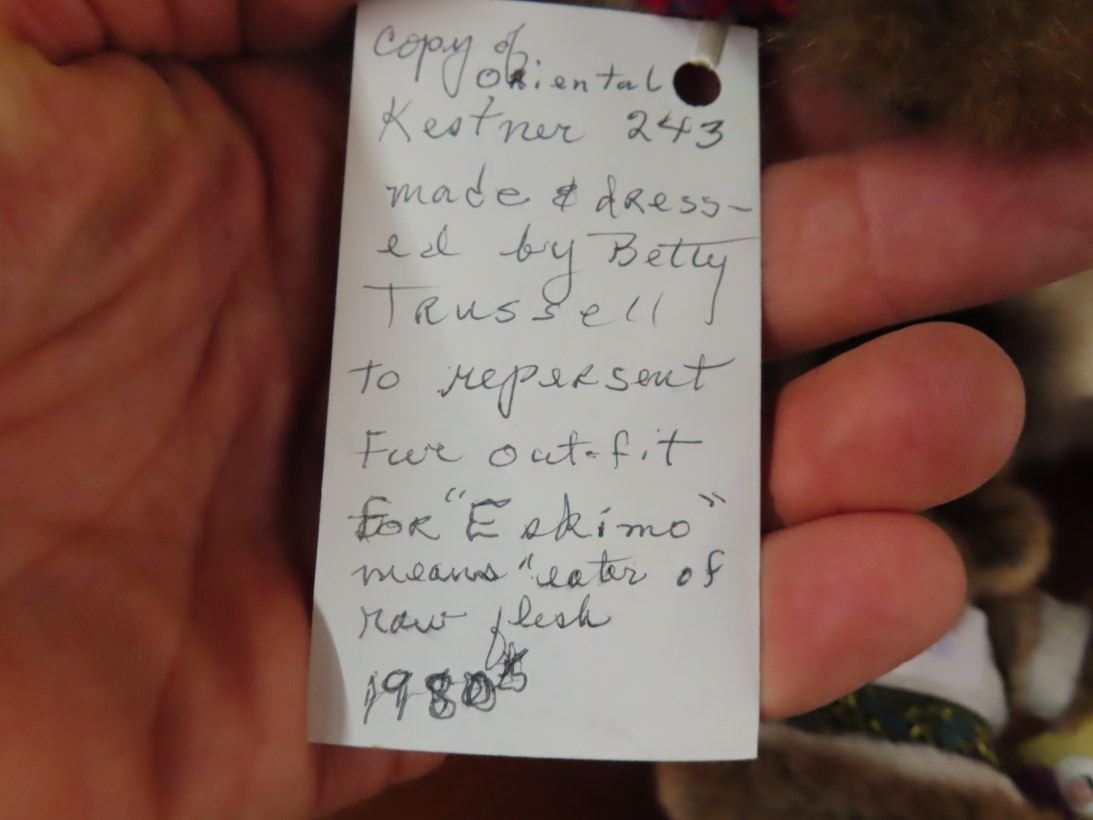 Copy of
Oriental
Kestner 243
made & dress-
ed by Betty
Trussell
to repersent
Fur out-fit
for "Eskimo"
means "eater of
raw flesh
1980